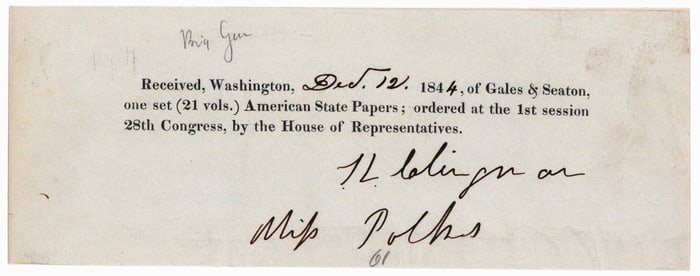 Brig Gen
Received, Washington, Dec. 12. 1844, of Gales & Seaton,
one set (21 vols.) American State Papers; ordered at the 1st session
28th Congress, by the House of Representatives.
Clingman
Miss Polk
61